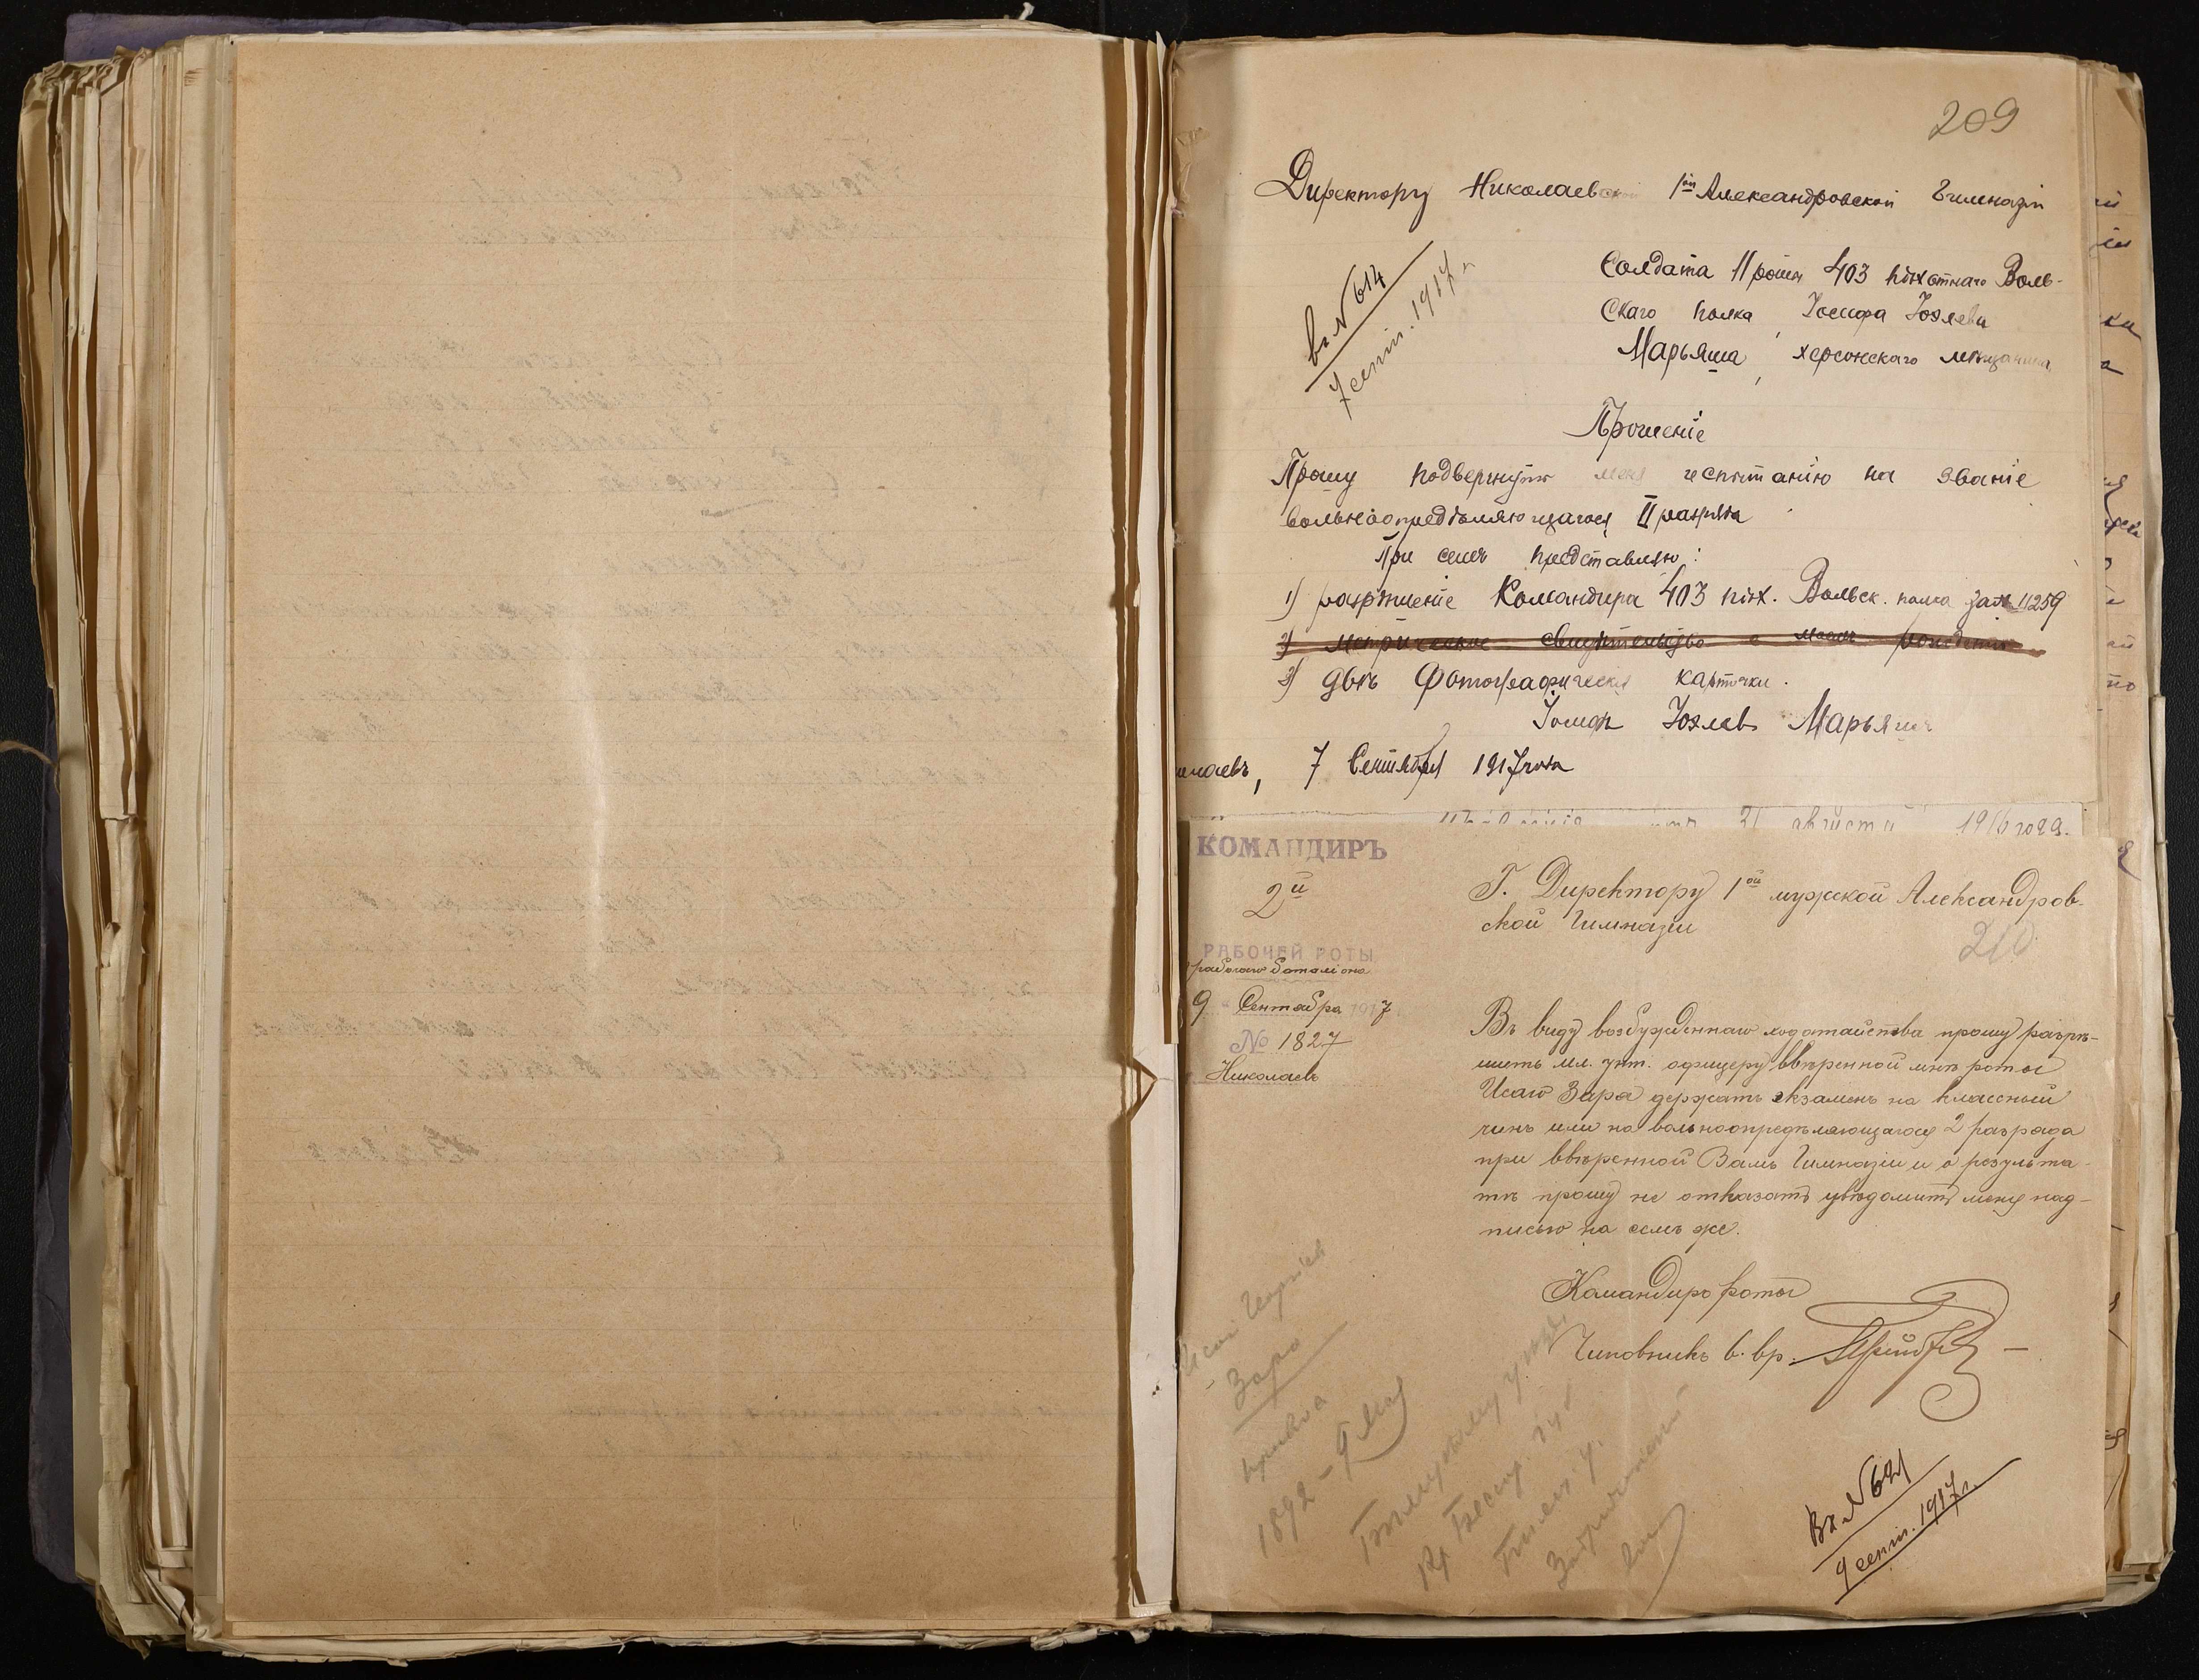 209
Директору Николаевской 1ой Александровской Гимназіи
Вх. № 614
7 сент. 1917 г.
Солдата 11 роты 403 пѣхотнаго Воль-
скаго полка Іосифа Іозлева
Марьяша, херсонскаго мѣщанина
Прошеніе
Прошу подвергнуть меня испытанію на званіе
вольноопредѣляющагося II разряда
При семъ представляю:
1) разрѣшеніе Командира 403 пѣх. Вольск. полка за № 11259
2) Метрическое свидѣтельство о моемъ рожденіи
3) двѣ фотографическія карточки.
Іосифъ Іозлевъ Марьяшъ
7 Сентября 1917 года
21 августа 1916 года.
КОМАНДИРЪ
2й
РАБОЧЕЙ РОТЫ
рабочаго баталіона
9 Сентября 1917
№ 1827
Николаевъ
Г. Директору 1ой мужской Александров-
ской Гимназіи
210
Въ виду возбужденнаго ходатайства прошу разрѣ-
шить мл. унт. офицеру ввѣренной мнѣ роты
Исаю Зара держать экзаменъ на классный
чинъ или на вольноопредѣляющагося 2 разряда
при ввѣренной Вамъ Гимназіи и о результа-
тѣ прошу не отказать увѣдомить меня над-
писью на семъ же.
Командиръ роты
Чиновникъ в. вр.
Зара
1892 - 9 мая
Вх. № 621
9 сент. 1917 г.